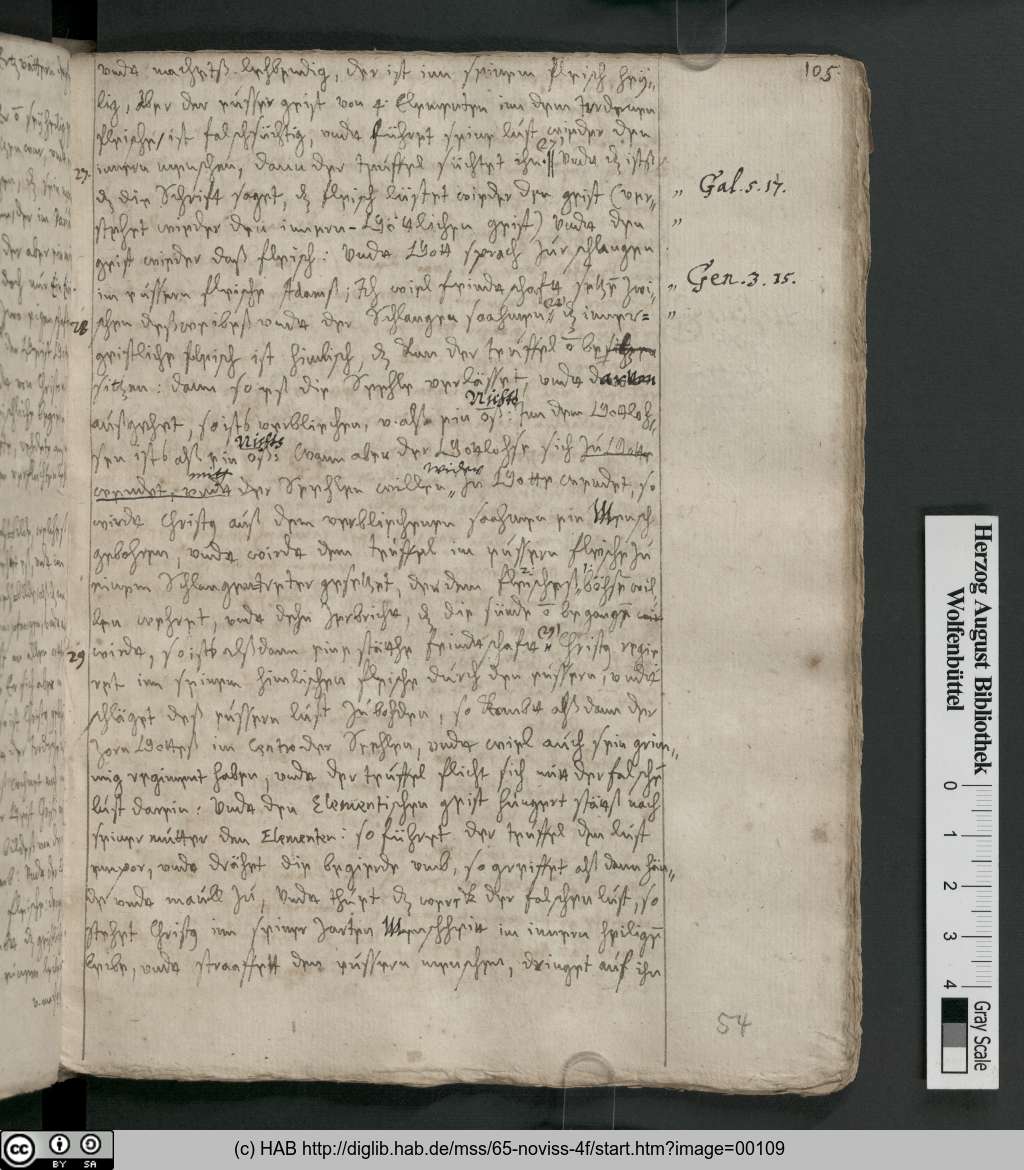 105
undt machetß lebendig, der ist inn seinem fleisch hey„
lig, Aber der eusser geist von 4. Elementen im dem Irdenen
fleische/ ist falschsüchtig, undt führet seine lust wieder den
27. innern menschen, dann der teuffel süchtet ihn. (27 Undt dz istß
dz die Schrift saget, dz fleisch lüstet wieder den geist (ver„ „ Gal. 5. 17.
stehet wieder den innern-Göttlichen geist) Undt den „
geist wieder daß fleisch: Undt Gott sprach zur schlangen
im eussern fleische Adamß; Ich wiel feindtschaft setzen zwi„ „ Gen. 3. 15.
28 schen deß weibeß undt der Schlangen saahmen (28 dz inner= „
geistliche fleisch ist himlisch, dz kan der teuffel ō be
sitzen: dann so eß die Seehle verlässet, undt darvon
außgehet, so istß verblichen, v. alß ein Nichts: Inn dem Gottloh„
sen istß alß ein Nichts: Wann aber der Gottlohse sich zu Gotte
wendet, undt mitt der Seehlen willen wider zu Gotte wendet, so
wirdt Christus auß dem verblichenen saahmen ein Mensch
gebohren, undt wirdt dem teuffel im eussern fleische zu
einem Schlangentreter gesetzet, der dem fleischeß böhse wil
len wehret, undt dehn zerbricht, dz die sünde ō begangen
29 wirdt, so istß alßdann eine stäthe feindtschaft (29 Christus regie
ret inn seinem himlischen fleische durch den eussern, undt
schläget deß eussern lust zu bohden, so kombt alß dann der
Zorn Gotteß im Centro der Seehlen, undt wiel auch sein grim„
mig regiment haben, undt der teuffel flicht sich mit der falschen
lust darein: Undt den Elementischen geist hungert stätß nach
seiner mutter den Elementen: so führet der teuffel den lust
empor, undt drähet die begierde umb, so greiffet alß dann hän„
de undt maull zu, Undt thuet dz werck der falschen lust, so
stehet Christus inn seiner zarten Menschheit im innern heiligen
leibe, undt straaffett den eussern menschen, dringet auf ihn
54
Herzog August Bibliothek
Wolfenbüttel
0 1 2 3 4
Gray Scale
cc BY SA
(c) HAB http://diglib.hab.de/mss/65-noviss-4f/start.htm?image=00109